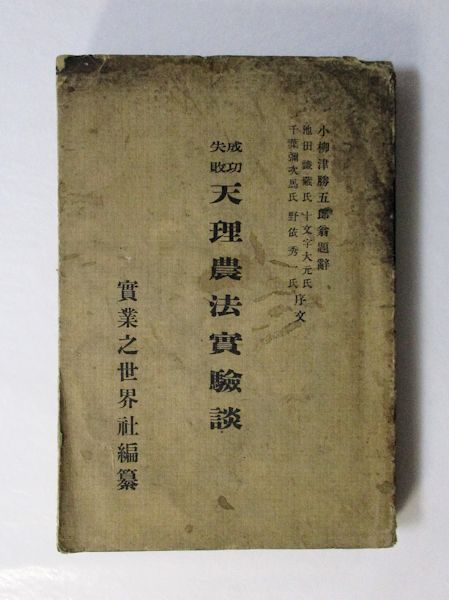 小柳津勝五郎翁題辭
池田謙蔵氏 十文字大元氏
千葉彌次馬氏 野依秀一氏
序文
成功
失敗
天理農法實驗談
實業之世界社編纂